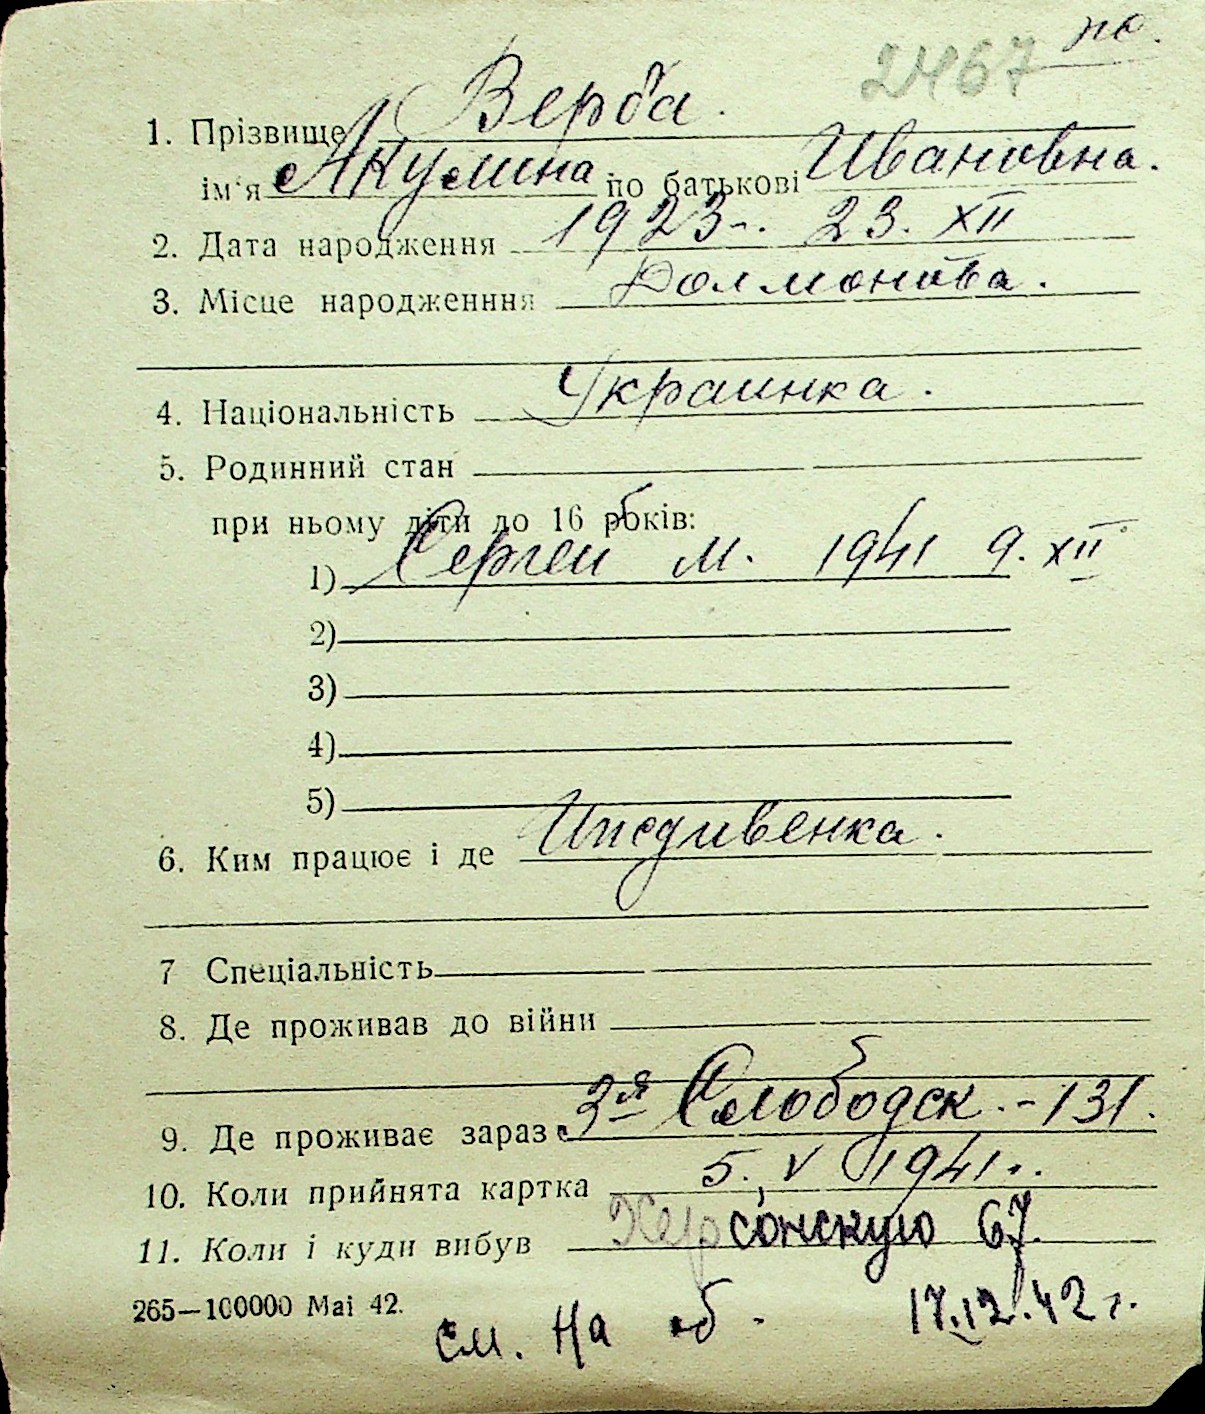 2467 по.
1. Прізвище Верба.
ім'я Акулина по батькові Ивановна.
2. Дата народження 1923 г. 23. XII
3. Місце народженння Долмоново.
4. Національність Украинка.
5. Родинний стан
при ньому діти до 16 років:
1) Сергей м. 1941 9. XII
2)
3)
4)
5)
6. Ким працює і де Иждивенка.
7 Спеціальність
8. Де проживав до війни
9. Де проживає зараз 3я Слободск. - 131.
10. Коли прийнята картка 5. V 1941 г.
11. Коли і куди вибув Херсонскую 67.
265—100000 Mai 42. 17.12.42 г.
см. на об.